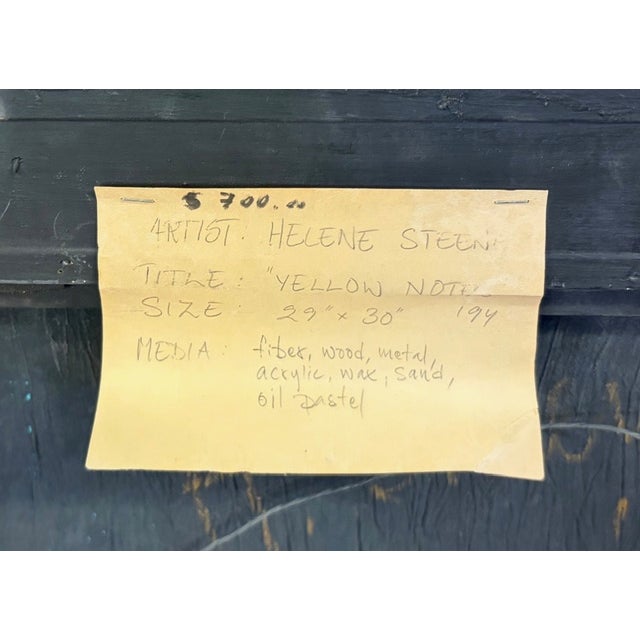 $ 700.00
ARTIST: HELENE STEENE
TITLE: "YELLOW NOTES
SIZE: 29" x 30" '94
MEDIA: fiber, wood, metal,
acrylic, wax, sand,
oil pastel